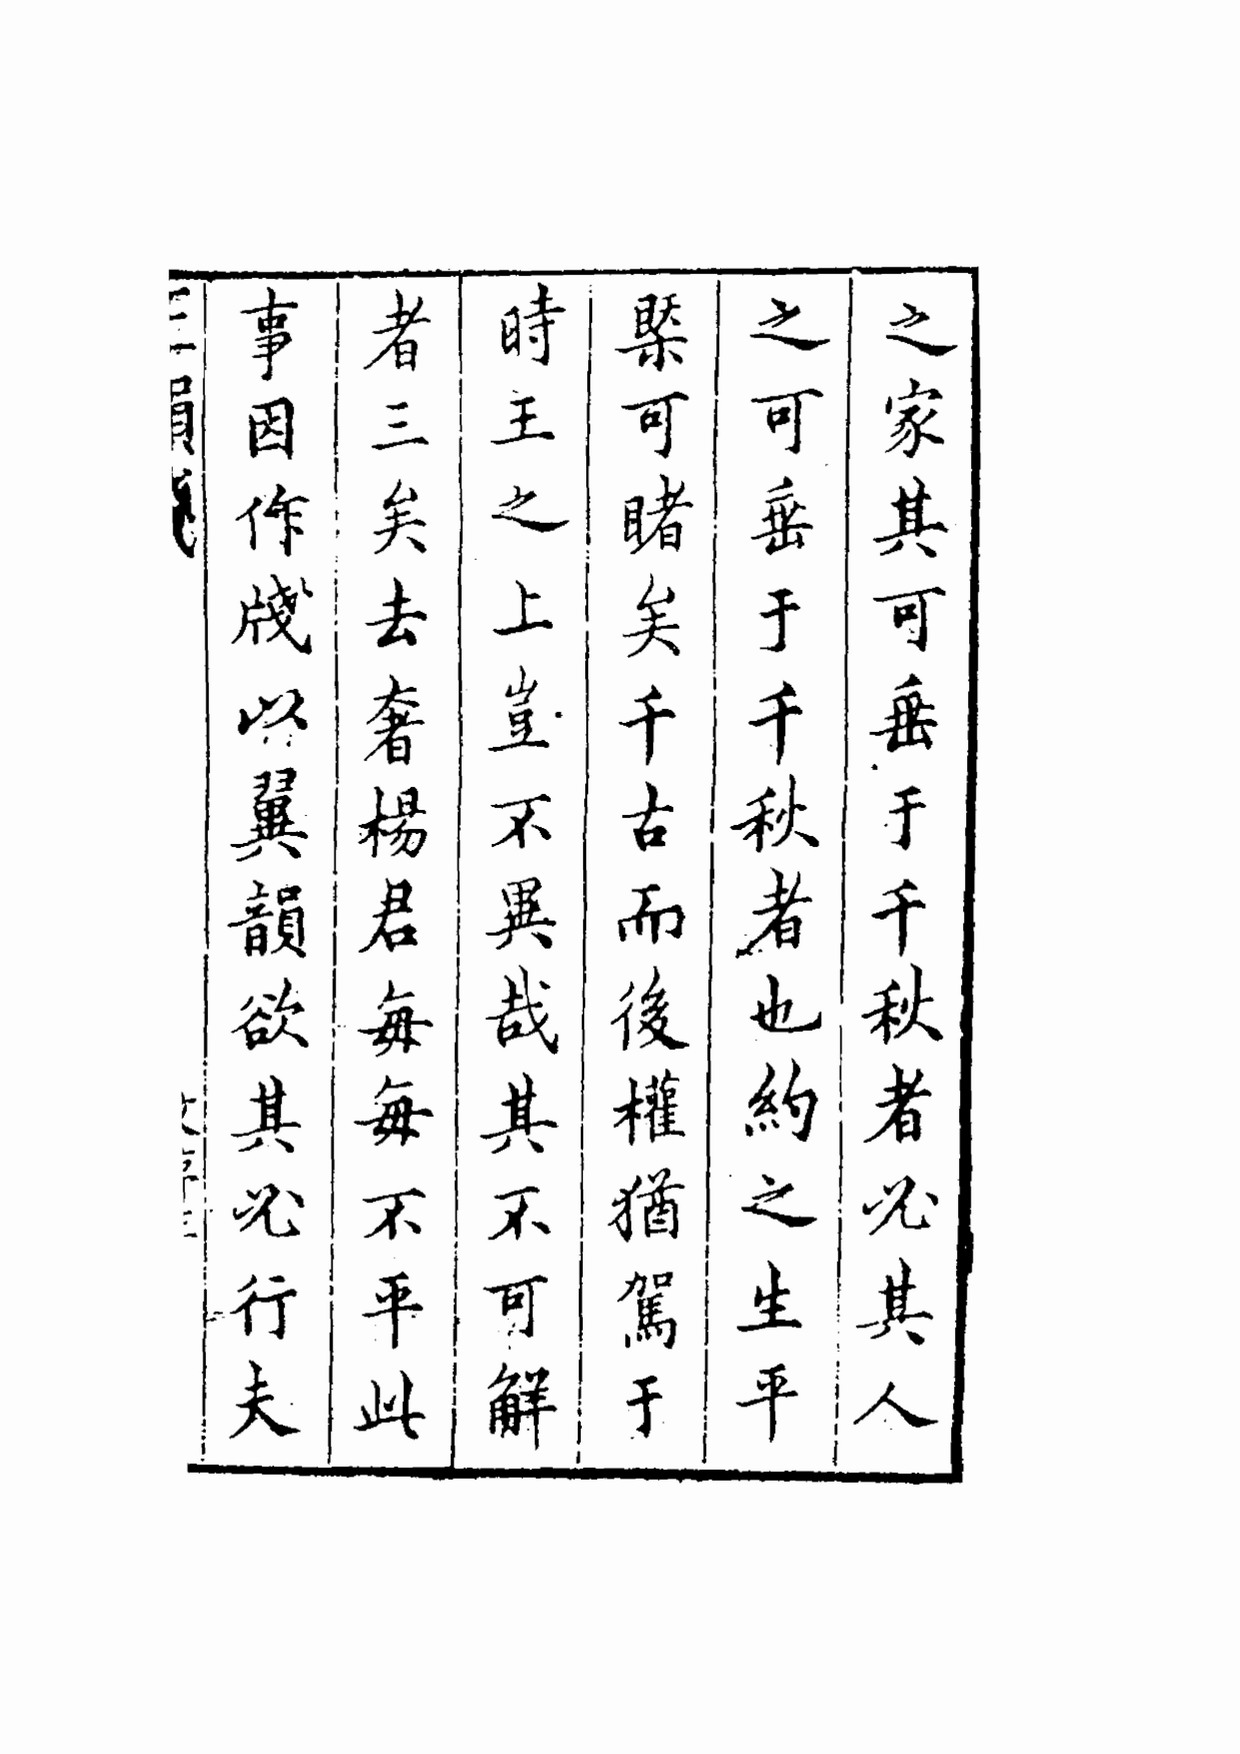 之家其可垂于千秋者必其人
之可垂于千秋者也約之生平
槩可睹矣千古而後權猶駕于
時王之上豈不異哉其不可解
者三矣去奢楊君每每不平此
事因作牋以翼韻欲其必行夫